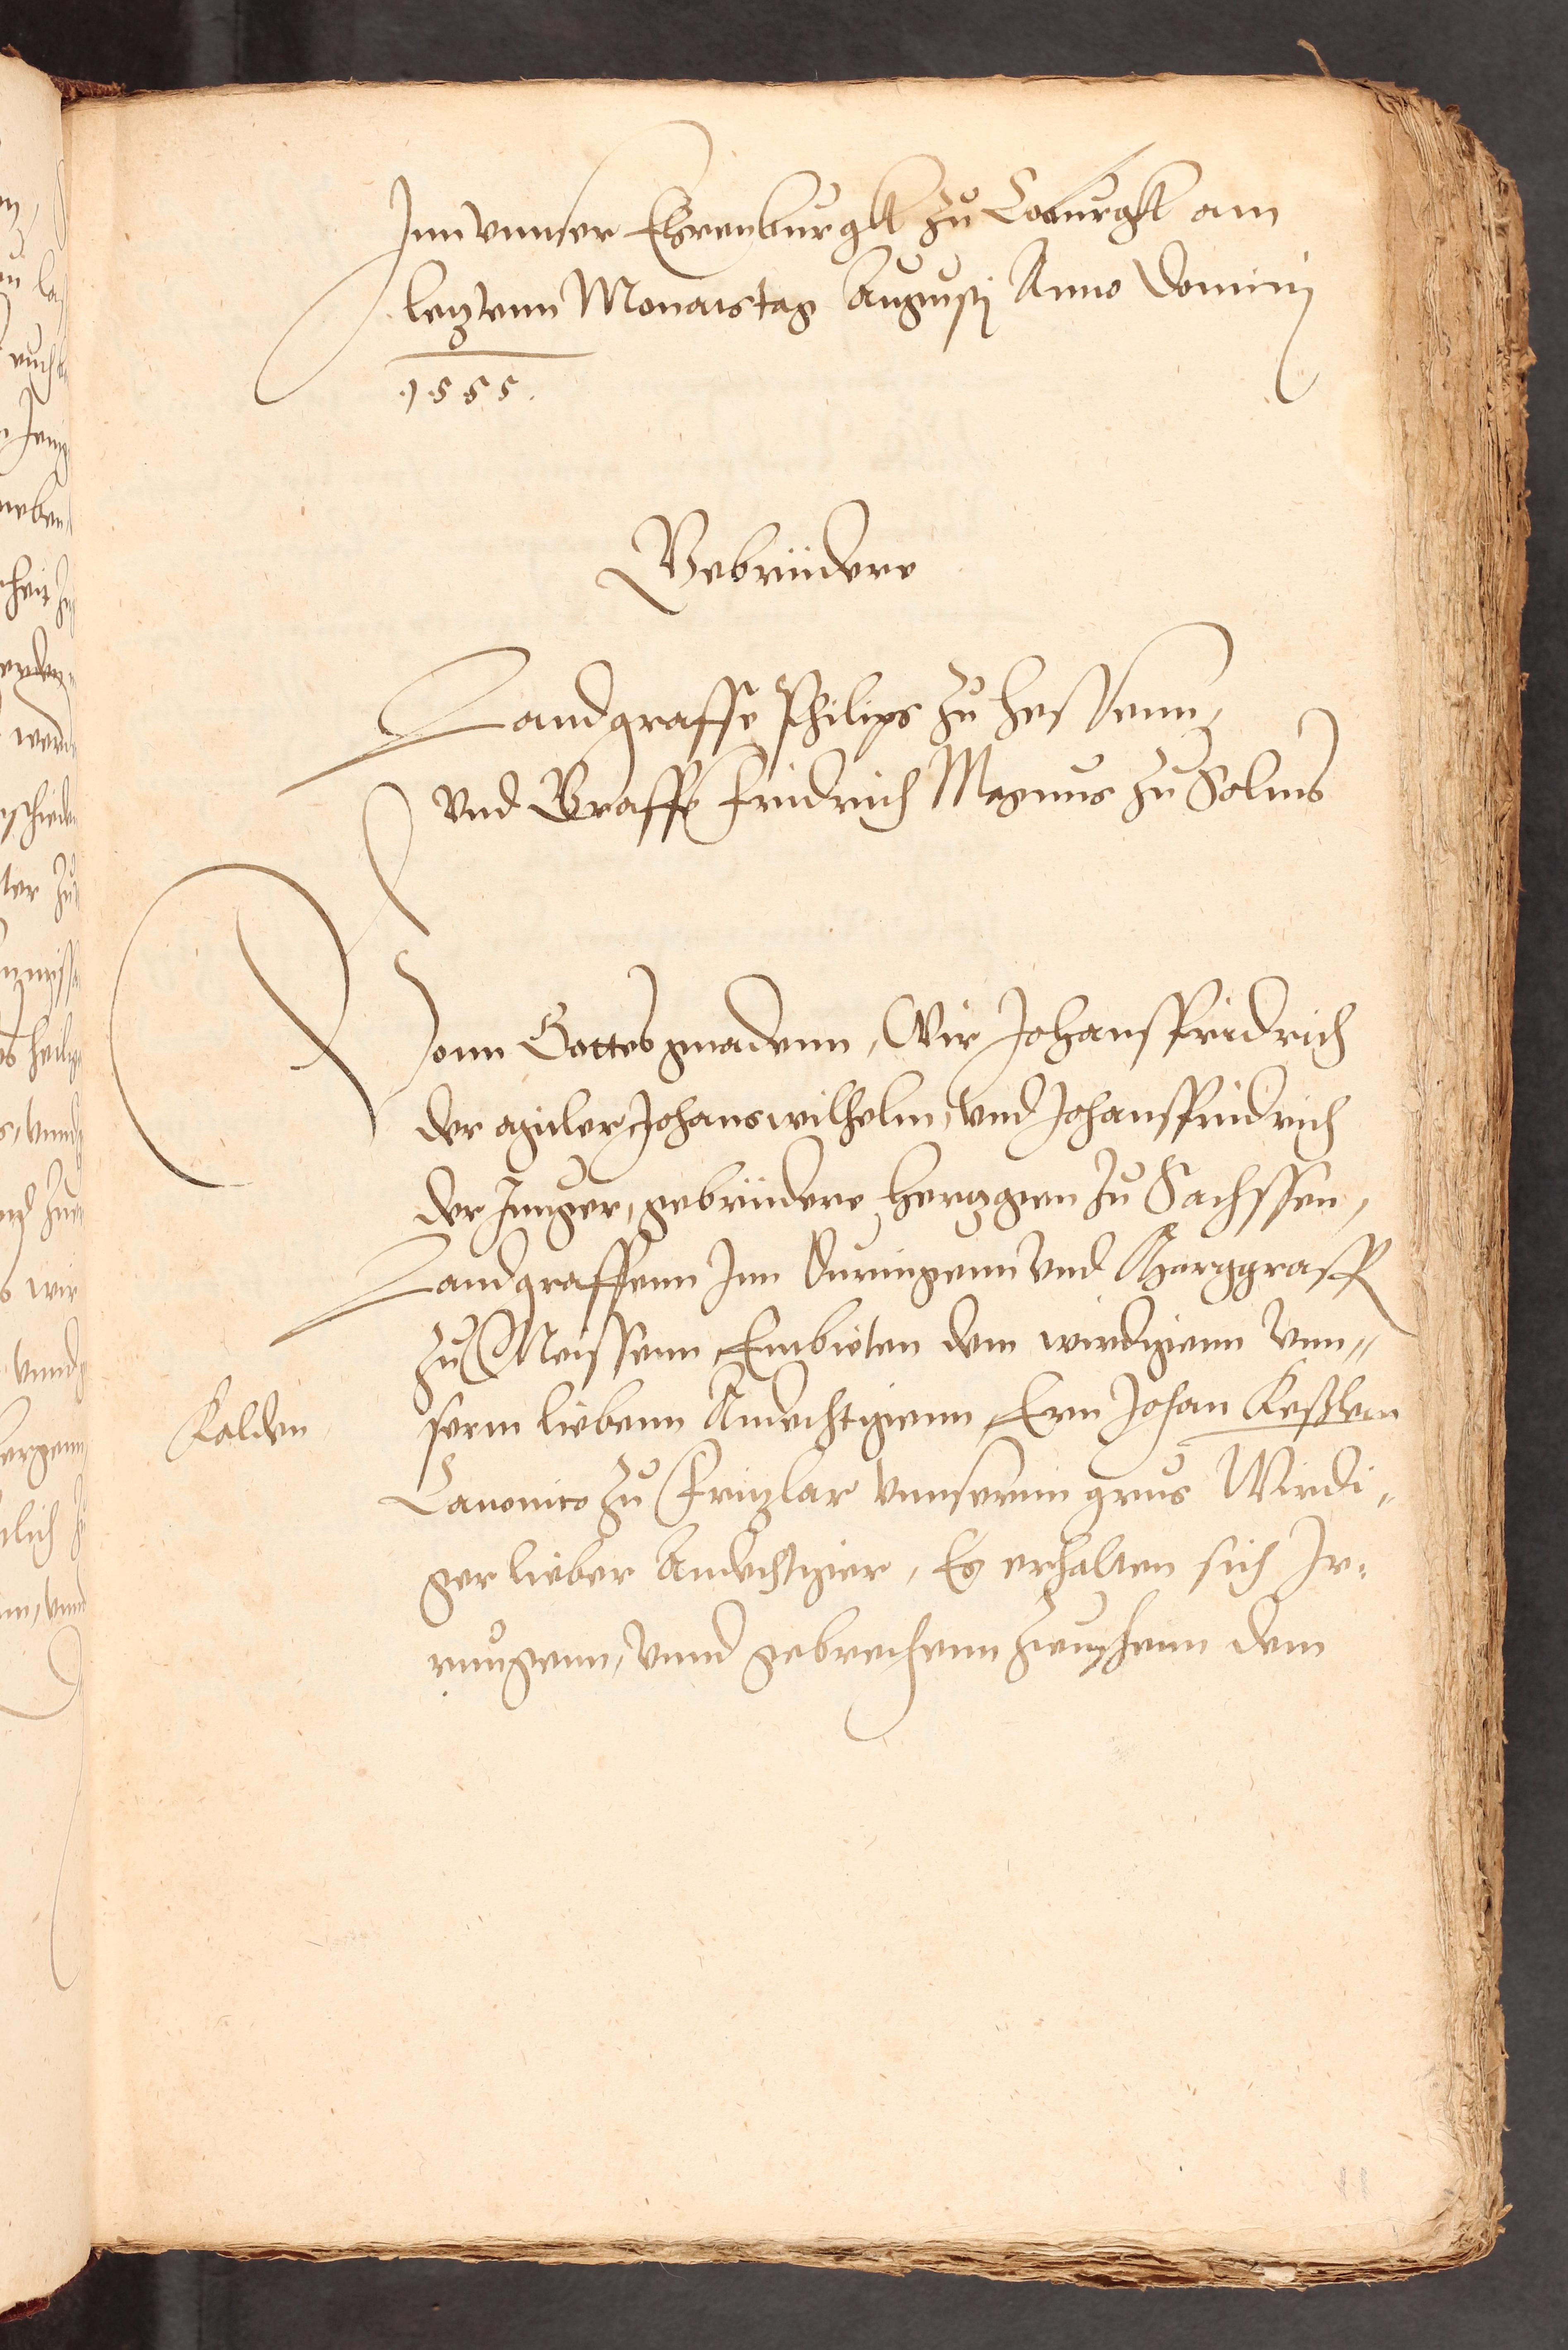 Inn vnnser Ehrenburgk zu Coburgk am
letztenn Monatstag Augustj Anno Dominj
.1555.
Gebrüdere
Landgraffe Philips zu Hessenn,
vnd Graffe Fridrich Magnus zu Solms
Vonn Gottes gnadenn, Wir Johansfridrich
der mitler, Johanswilhelm, vnd Johansfridrich
der Junger, gebrüdere Hertzogen zu Sachssen,
Landgraffenn Inn Duringenn vnd Marggraff
zu Meissenn, Embieten dem wirdigenn vnn"
serm liebenn Andechtigenn, Ern Johan Keßlern
Kalden
Canonico zu Fritzlar vnnsernn grus Wirdi"
ger lieber Andechtiger, Es erhalten sich Ir=
rungenn, vnnd gebrechenn zwuschenn dem